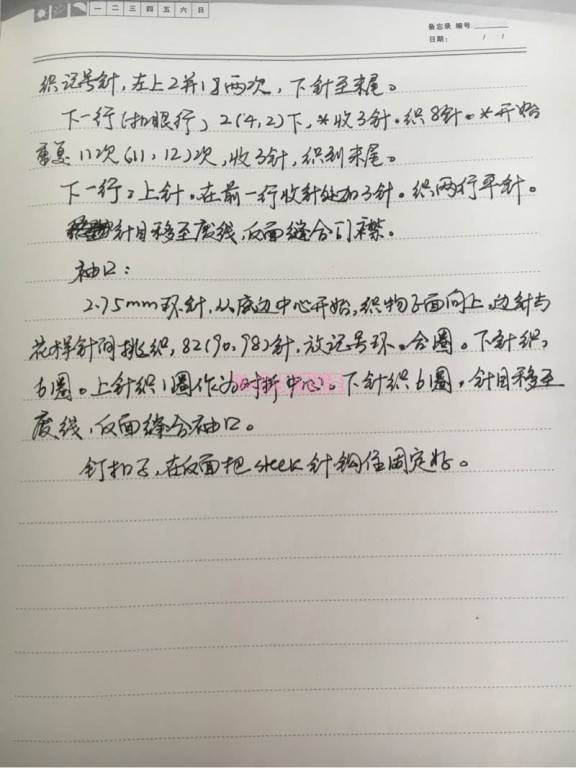 一 二 三 四 五 六 日
备忘录 编号
日期: / /
织记号针,左上2并1}两次,下针至末尾。
下一行(扣眼行)2(4,2)下,*收3针。织8针。*开始
重复11次(11,12)次,收3针,织到末尾。
下一行:上针。在前一行收针处加3针。织两行平针。
针目移至废线,反面缝合门襟。
袖口:
2.75mm环针,从底边中心开始,织物正面向上,边针与
花样针间挑织,82(90,98)针,放记号环。合圈。下针织
6圈。上针织1圈作为对折中心。下针织6圈。针目移至
废线,反面缝合袖口。
钉扣子,在反面把steek针钩住固定好。